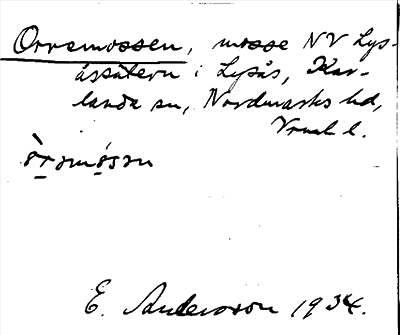 Orremossen, mosse NV Lys-
åssätern i Lysås, Kar-
landa sn, Nordmarks hd,
Vrml l.
òrəmósən
E. Andersson 1934.